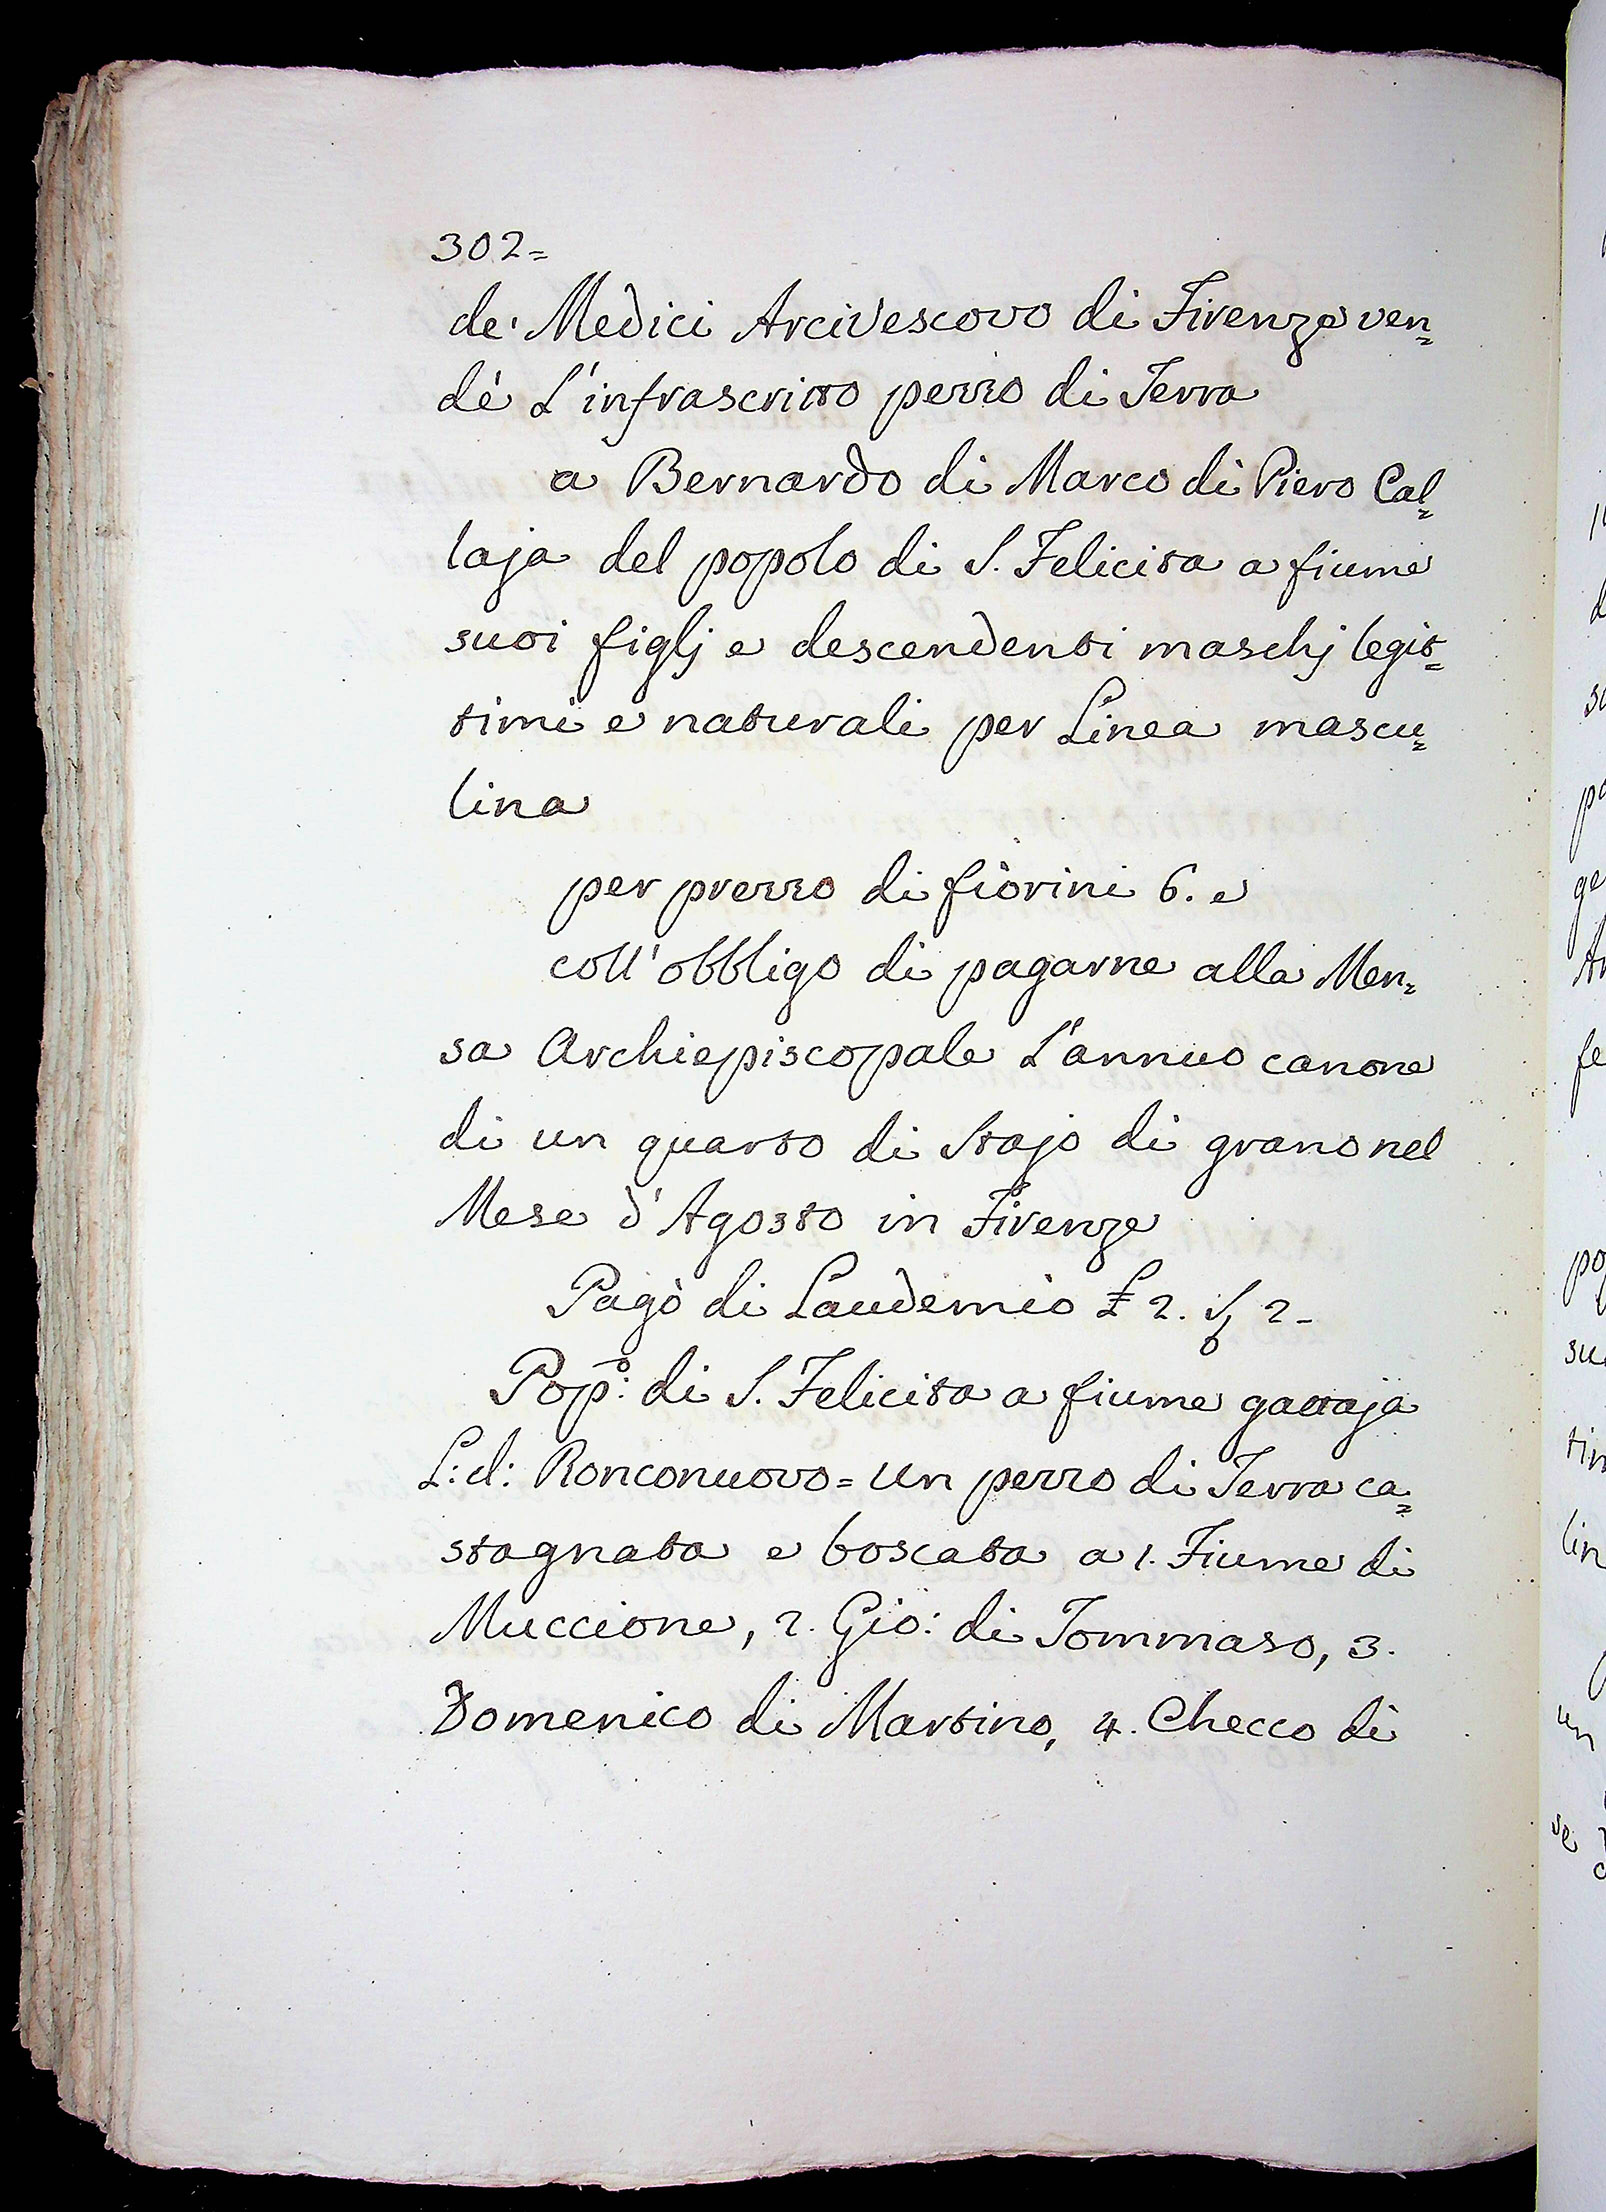 302=
de' Medici Arcivescovo di Firenze ven=
dè L'infrascritto pezzo di Terra
a Bernardo di Marco di Piero Cal=
laja del popolo di S. Felicita a fiume
suoi figlj e descendenti maschj legit=
timi e naturali per Linea mascu=
lina
per prezzo di fiorini 6. e
coll' obbligo di pagarne alla Men=
sa Archiepiscopale L'annuo canone
di un quarto di Stajo di grano nel
Mese d'Agosto in Firenze
Pagò di Laudemio £ 2. 2-
Pop.º: di S. Felicita a fiume gattaja
L: d: Ronconuovo = Un pezzo di Terra ca=
stagnata e boscata a 1. Fiume di
Muccione, 2. Gio: di Tommaso, 3.
Domenico di Martino, 4. Checco di